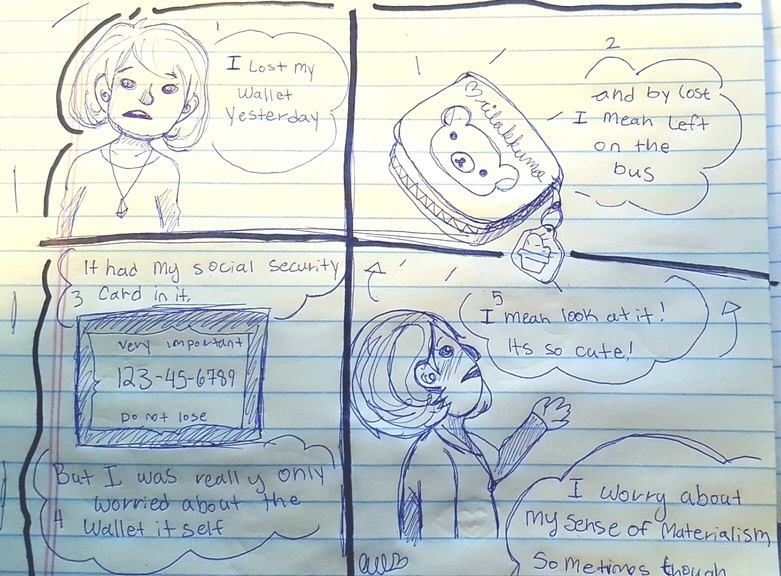 1
I Lost my
Wallet
Yesterday
2
and by lost
I mean Left
on the
bus
rilakkuma
It had my social security
3 Card in it.
very important
123-45-6789
Do not lose
But I was really only
worried about the
4 Wallet it self
5
I mean look at it!
Its so cute!
I worry about
My sense of Materialism
Sometimes though